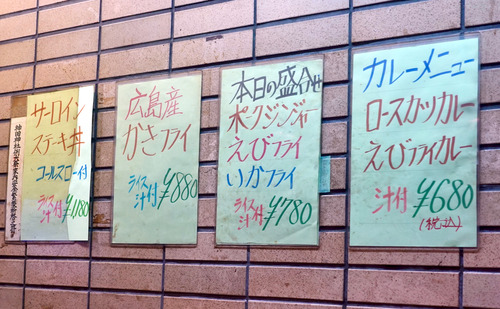 サーロイン
ステーキ丼
コールスロー付
ライス
汁付 ¥1180
広島産
かきフライ
ライス
汁付 ¥880
本日の盛合せ
ポークジンジャー
えびフライ
いかフライ
ライス
汁付 ¥780
カレーメニュー
ロースカツカレー
えびフライカレー
汁付 ¥680
(税込)